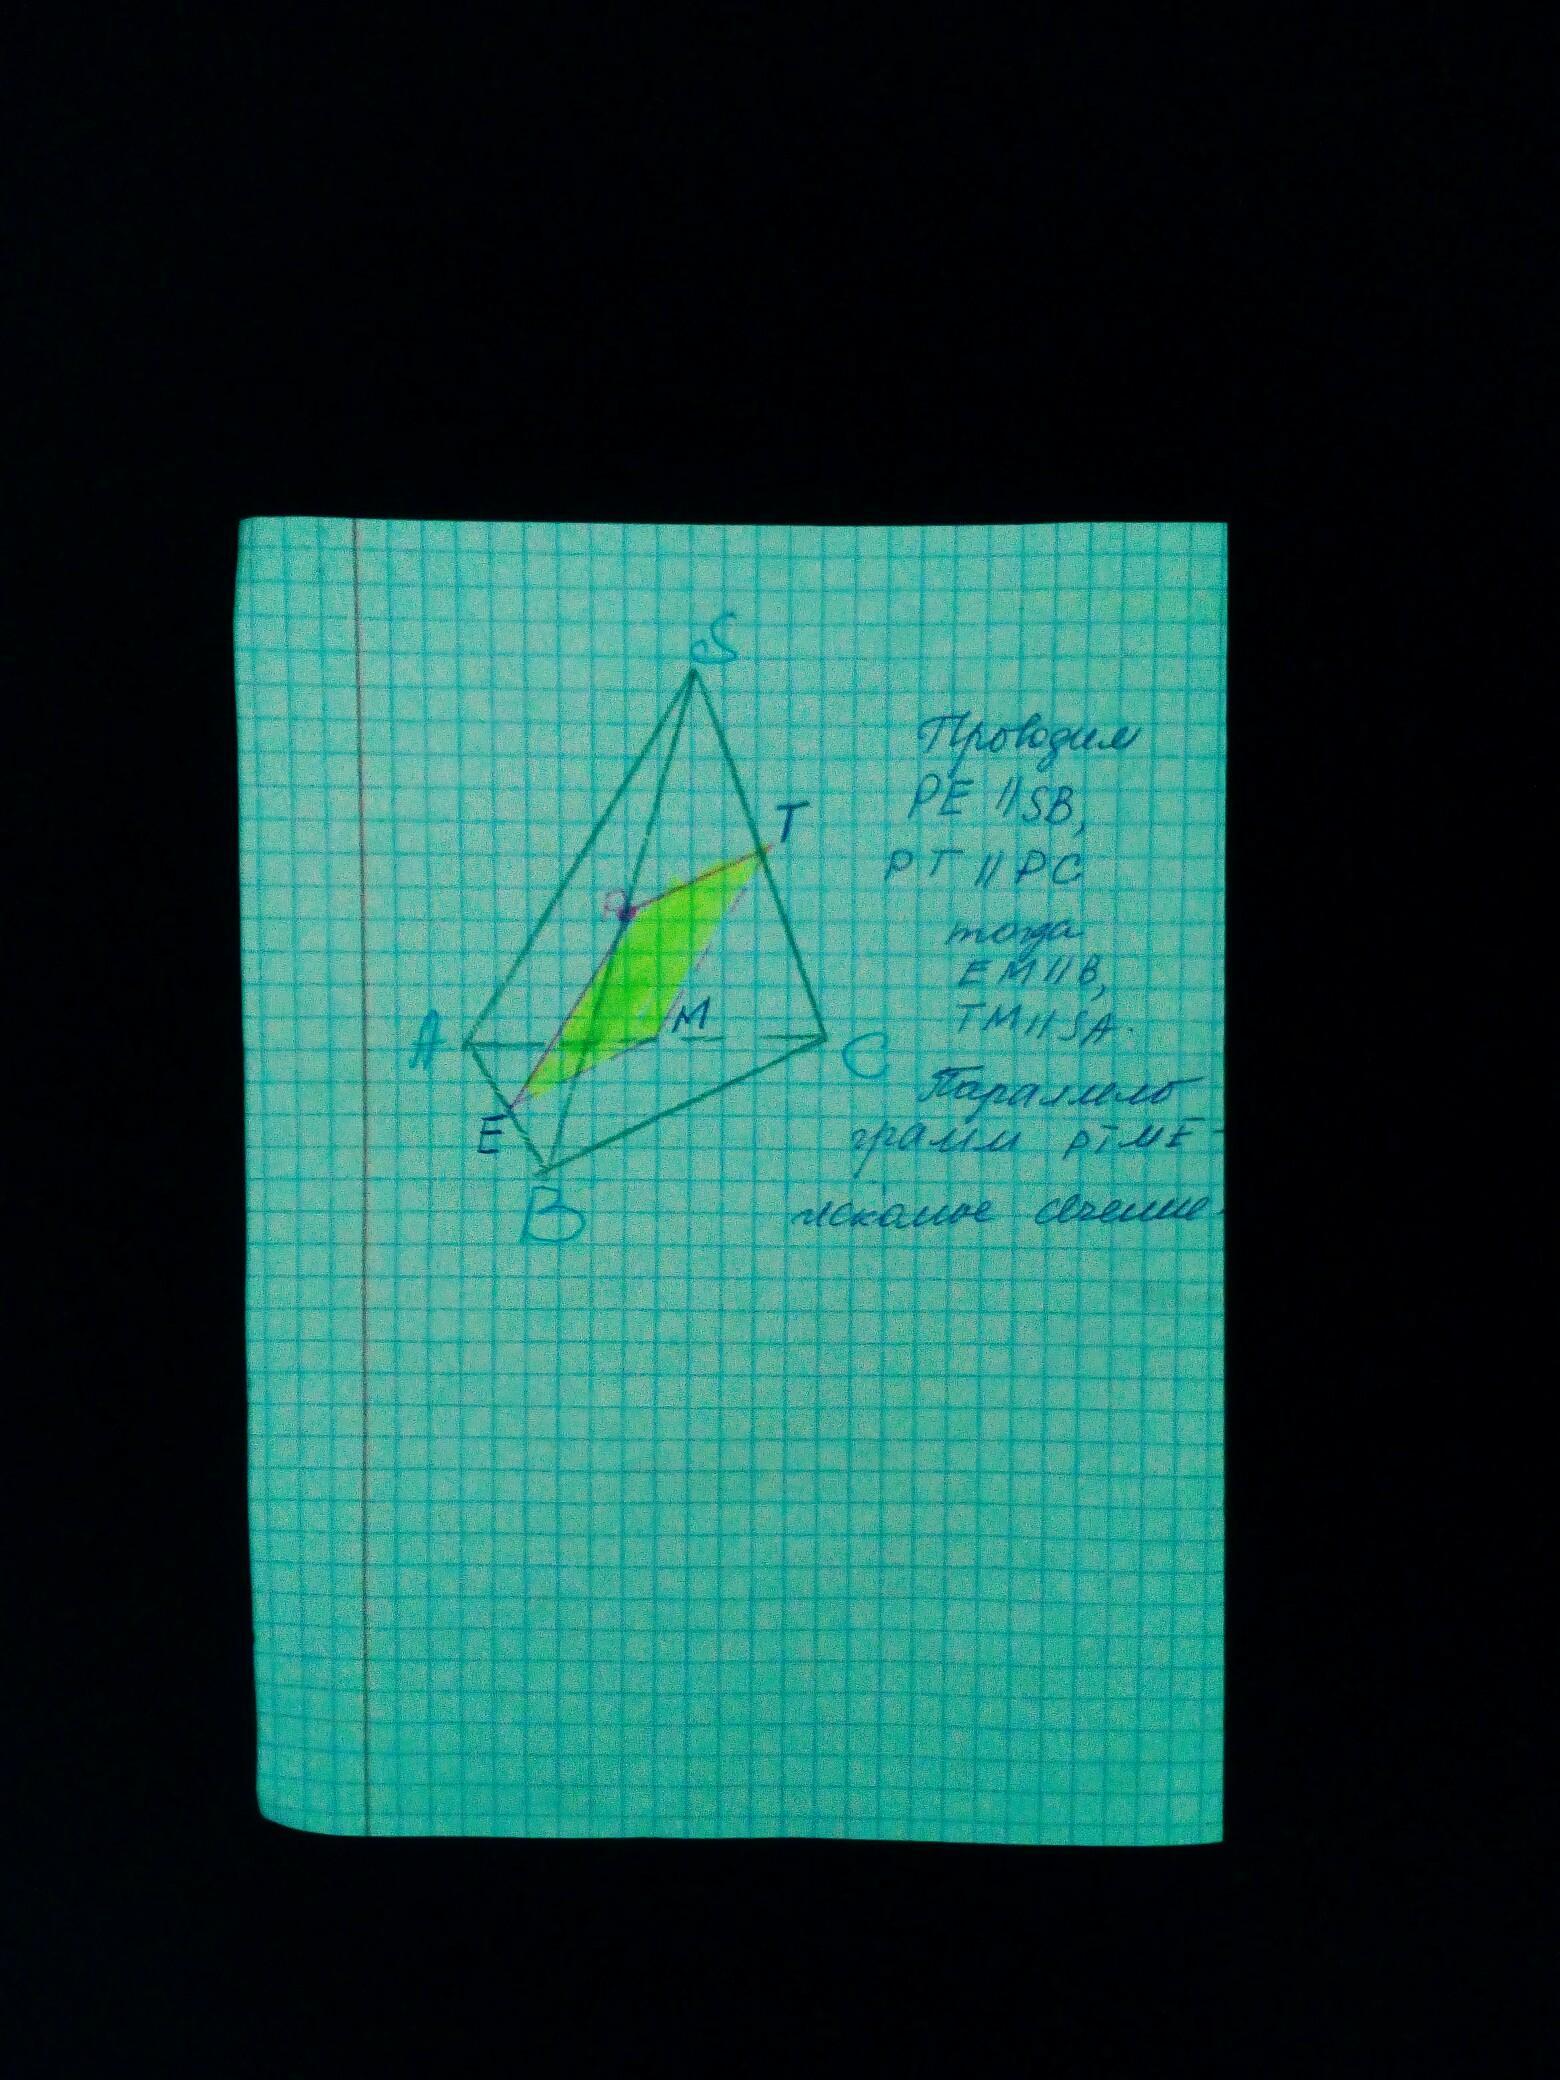 S
T
P
A
M
C
E
B
Проводим
PE || SB,
PT || PC
тогда
EM || B,
TM || SA.
Параллело
грамм PTME -
искомое сечение.